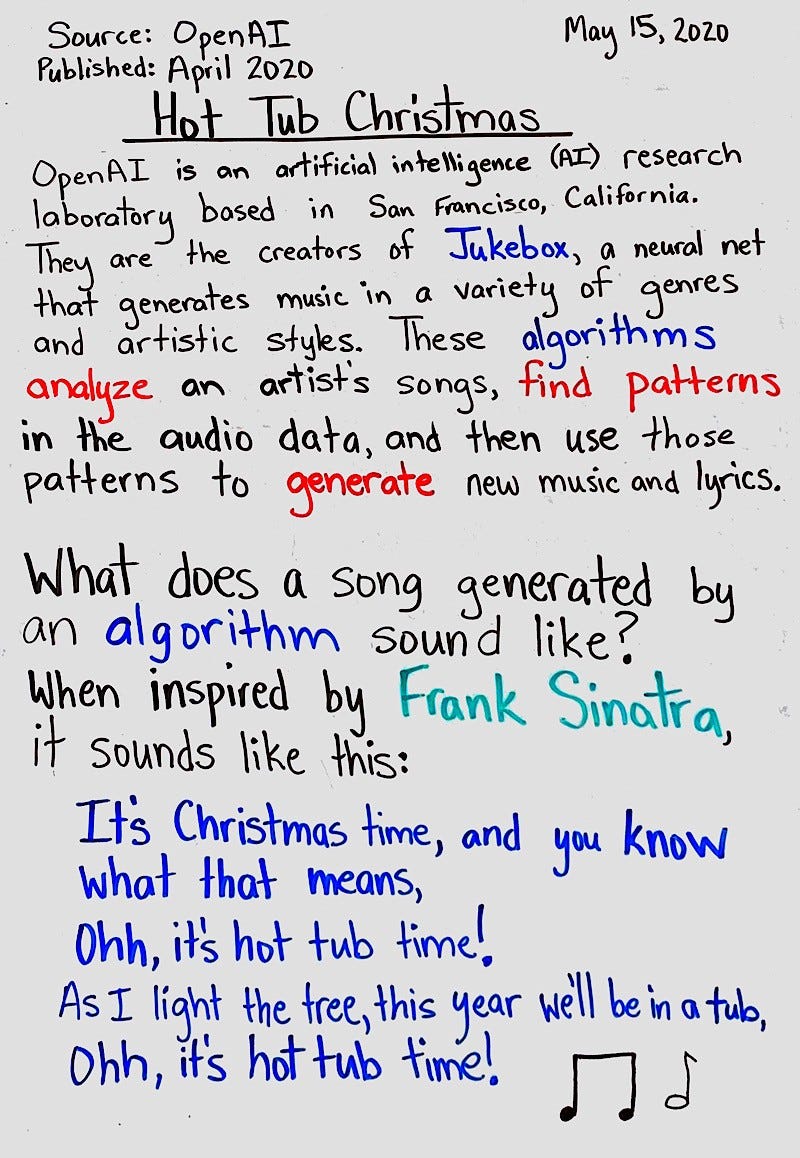 Source: OpenAI
May 15, 2020
Published: April 2020
Hot Tub Christmas
OpenAI is an artificial intelligence (AI) research
laboratory based in San Francisco, California.
They are the creators of Jukebox, a neural net
that generates music in a variety of genres
and artistic styles. These algorithms
analyze an artist's songs, find patterns
in the audio data, and then use those
patterns to generate new music and lyrics.
What does a song generated by
an algorithm sound like?
When inspired by Frank Sinatra,
it sounds like this:
It's Christmas time, and you know
what that means,
Ohh, it's hot tub time!
As I light the tree, this year we'll be in a tub,
Ohh, it's hot tub time!